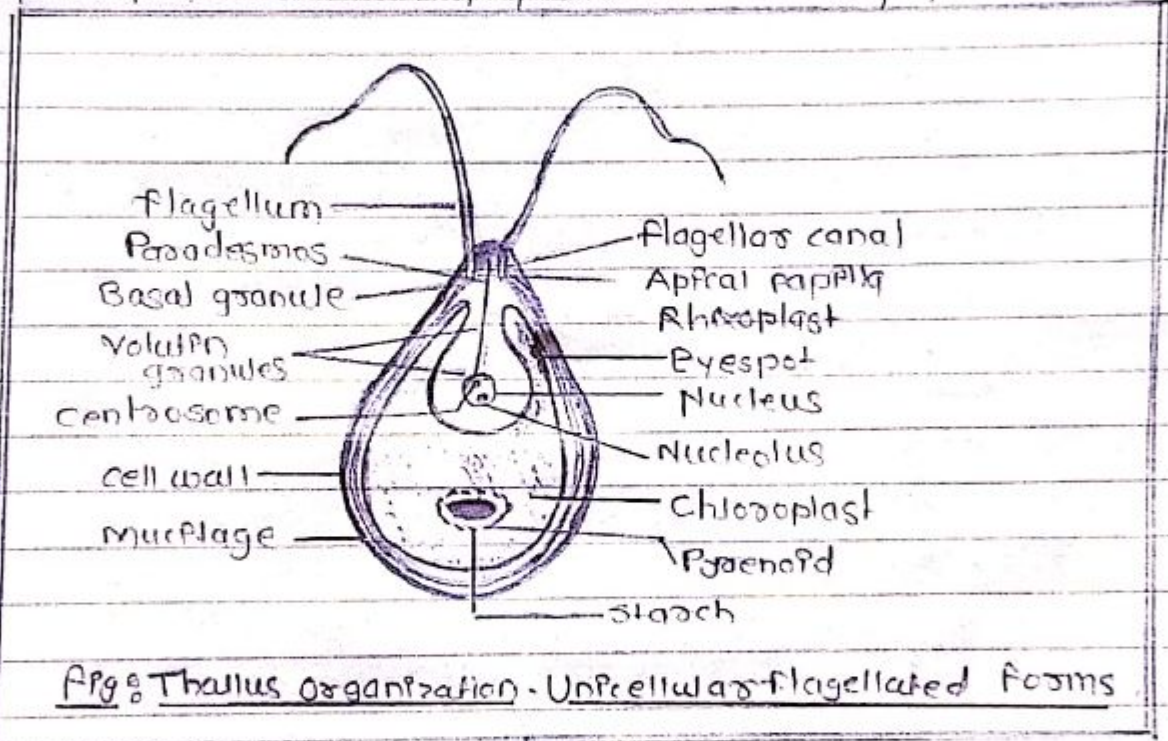 flagellum
Paradesmos
Basal granule
Volutin
granules
centrosome
cell wall
Mucilage
flagellar canal
Apical papilla
Rhizoplast
Eyespot
Nucleus
Nucleolus
Chloroplast
Pyrenoid
starch
Fig: Thallus organization - Unicellular flagellated forms